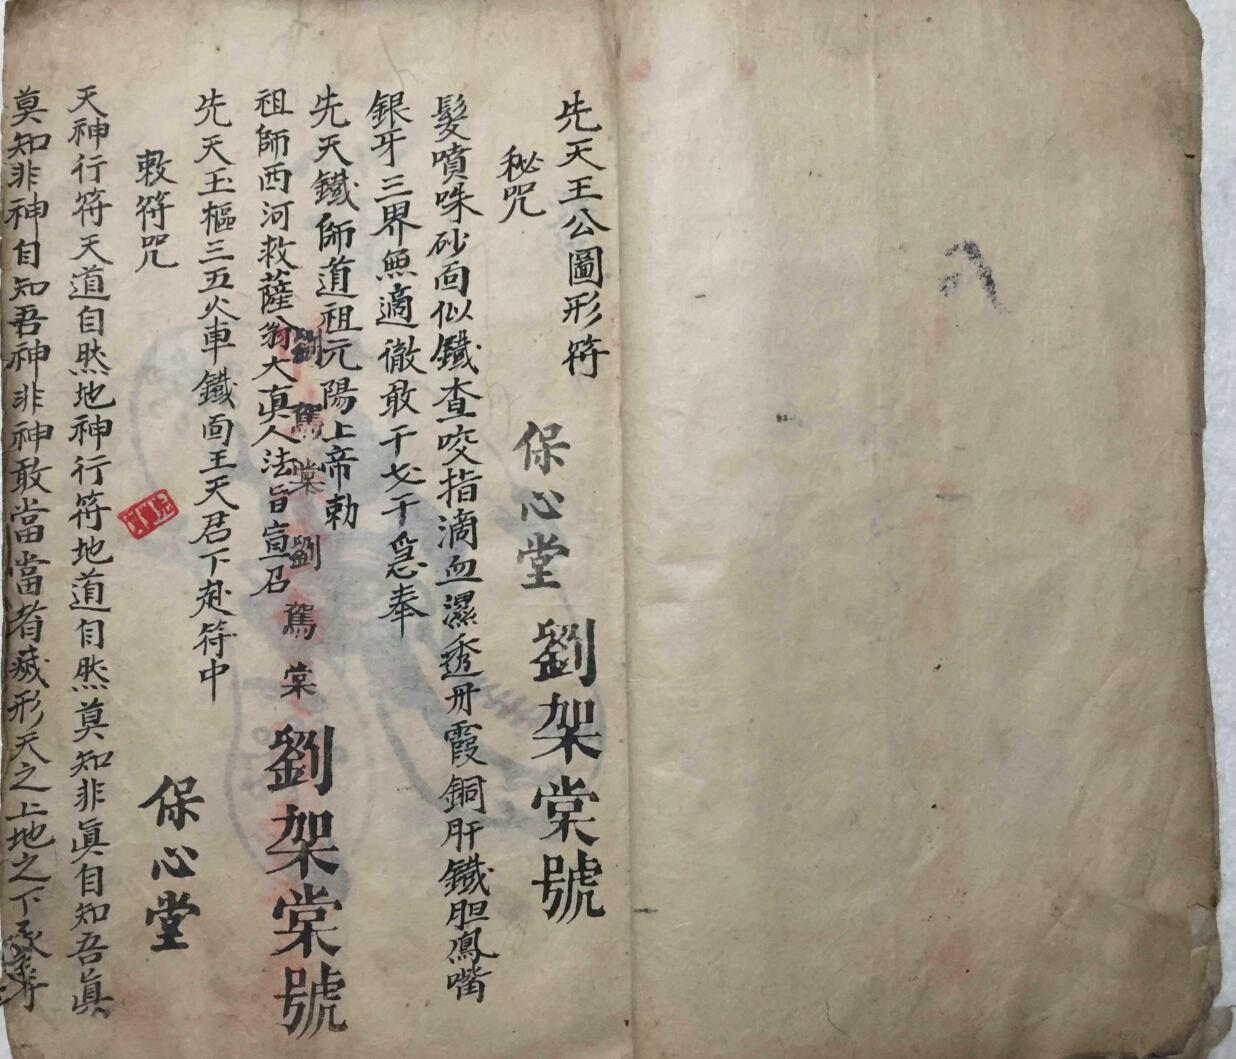 先天王公圖形符
保心堂
劉架棠號
秘咒
髮噴咮砂面似鐵查咬指滴血濕透丹霞銅肝鐵胆鳳嘴
銀牙三界無適徹敢干戈干急奉
先天鐵師道祖元陽上帝勅
劉架棠號
劉駕棠
劉駕棠
祖師西河救薩翁大真人法旨宣召
先天玉樞三五火車鐵面王天君下赴符中
敕符咒
保心堂
天神行符天道自然地神行符地道自然莫知非眞自知吾眞
莫知非神自知吾神非神敢當當者滅形天之上地之下